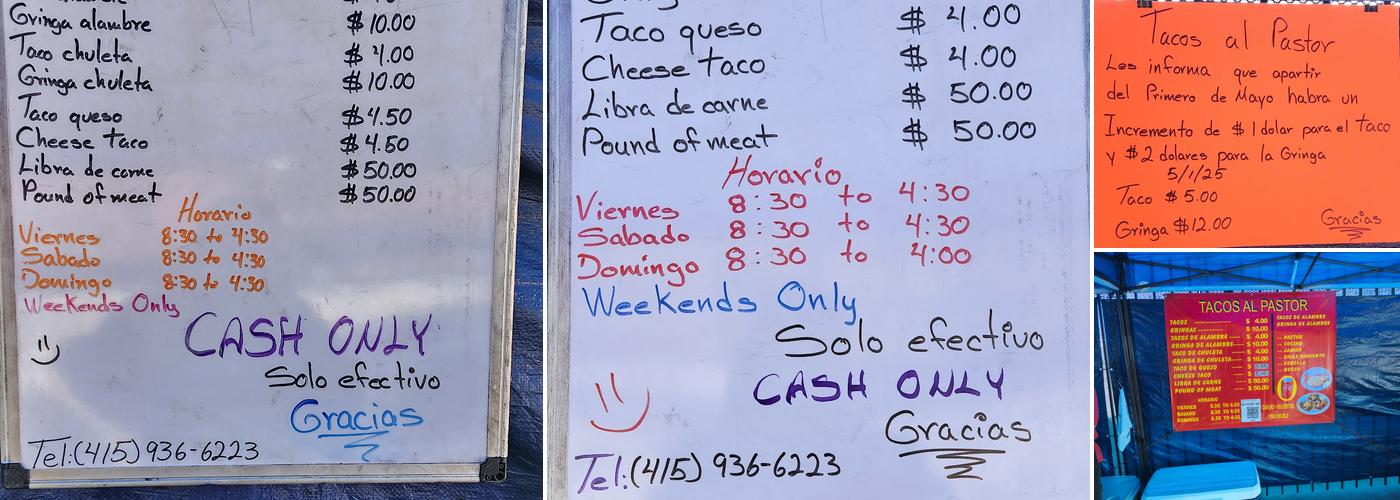 Gringa alambre $10.00
Taco chuleta $4.00
Gringa chuleta $10.00
Taco queso $4.50
Cheese taco $4.50
Libra de carne $50.00
Pound of meat $50.00
Horario
Viernes 8:30 to 4:30
Sabado 8:30 to 4:30
Domingo 8:30 to 4:30
Weekends Only
CASH ONLY
Solo efectivo
Gracias
Tel:(415)936-6223
Taco queso $ 4.00
Cheese taco $ 4.00
Libra de carne $ 50.00
Pound of meat $ 50.00
Horario
Viernes 8:30 to 4:30
Sabado 8:30 to 4:30
Domingo 8:30 to 4:00
Weekends Only
Solo efectivo
CASH ONLY
Gracias
Tel:(415)936-6223
Tacos al Pastor
Les informa que apartir
del Primero de Mayo habra un
Incremento de $1 dolar para el taco
y $2 dolares para la Gringa
5/1/25
Taco $5.00
Gringa $12.00
Gracias
TACOS AL PASTOR
TACOS $ 4.00
GRINGAS $ 10.00
TACOS DE ALAMBRE $ 4.00
GRINGA DE ALAMBRE $ 10.00
TACO DE CHULETA $ 4.00
GRINGA DE CHULETA $ 10.00
TACO DE QUESO
CHEESE TACO
LIBRA DE CARNE $ 50.00
POUND OF MEAT $ 50.00
HORARIO
VIERNES 8:30 TO 4:30
SABADO 8:30 TO 4:30
DOMINGO 8:30 TO
TACOS DE ALAMBRE
GRINGA DE ALAMBRE
PASTOR
TOCINO
JAMON
CHILE PIMIENTO
CEBOLLA
QUESO